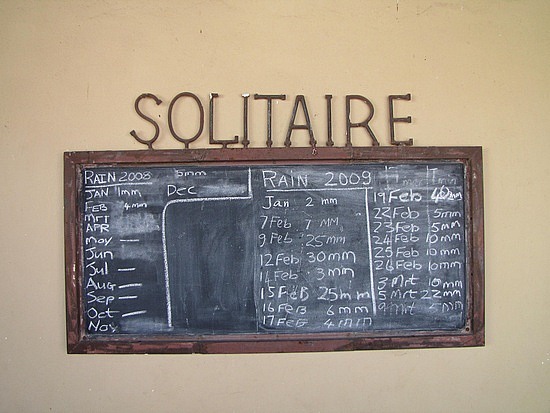 SOLITAIRE
RAIN 2008
JAN 1mm
FEB 4mm
MRT
APR
may —
Jun
Jul —
Aug —
Sep —
Oct —
Nov
5mm
Dec
RAIN 2009
Jan 2 mm
7 Feb 7 MM
9 Feb 25mm
12 Feb 30mm
14 Feb 3mm
15 FeB 25mm
16 FeB 6mm
17 FeB 4mm
19 Feb 40mm
22 Feb 5mm
23 Feb 5mm
24 Feb 10mm
25 Feb 10mm
26 Feb 10mm
3 Mrt 10mm
5 Mrt 22mm
9 Mrt 5mm